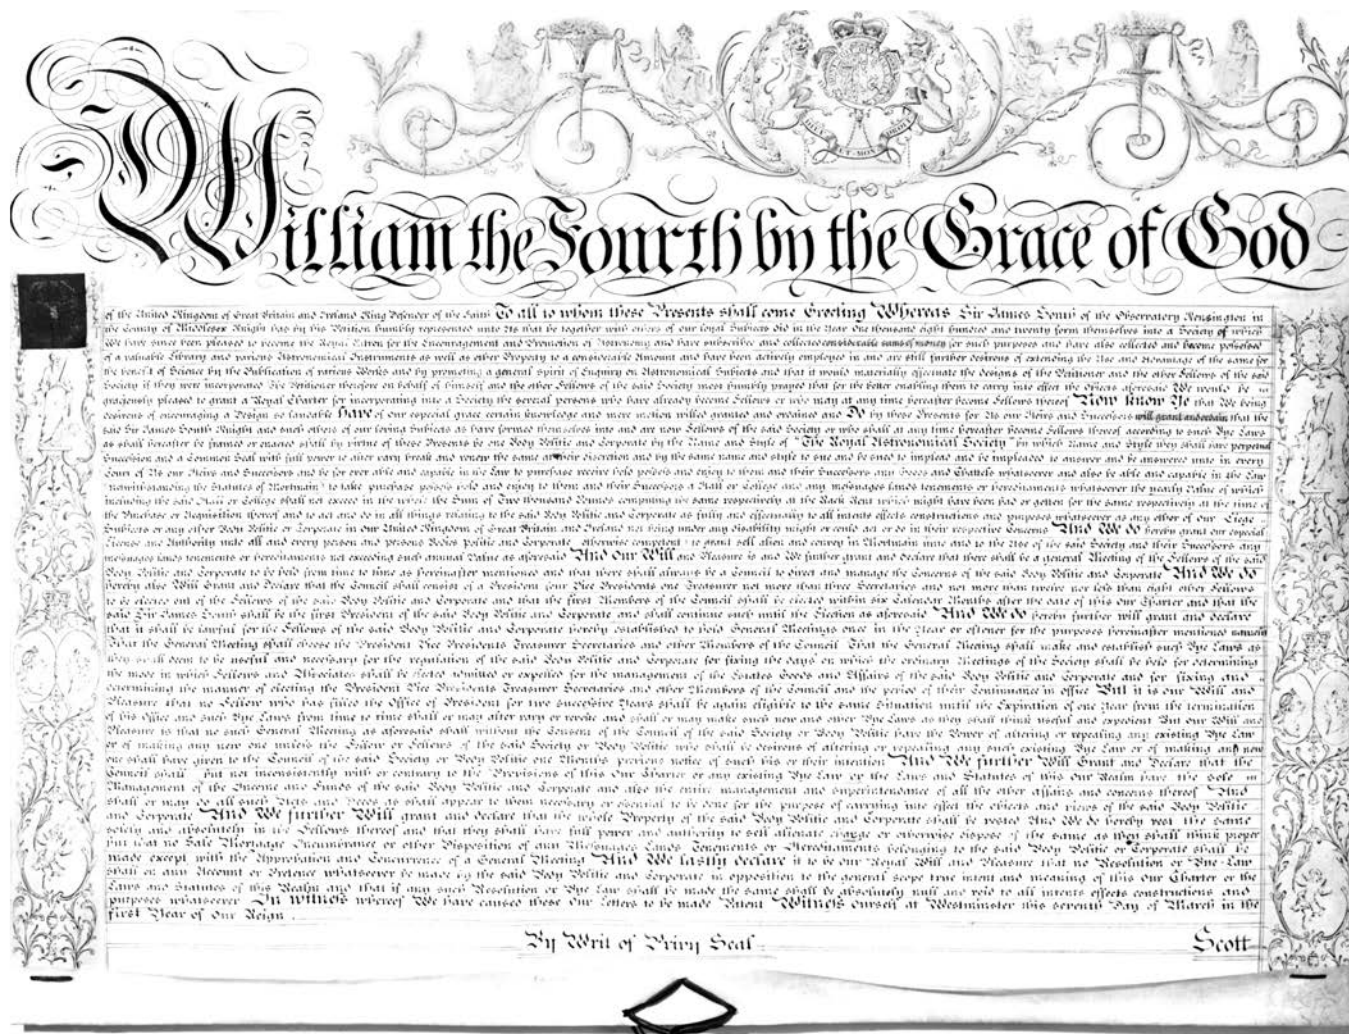 William the Fourth by the Grace of God
of the United Kingdom of Great Britain and Ireland King Defender of the Faith To all to whom these Presents shall come Greeting Whereas Sir James South of the Observatory Kensington in
the County of Middlesex Knight has by his Petition humbly represented unto Us that he together with others of our loyal Subjects did in the Year One thousand eight hundred and twenty form themselves into a Society of which
We have since been pleased to become the Royal Patron for the Encouragement and Promotion of Astronomy and have subscribed and collected considerable sums of money for such purposes and have also collected and become possessed
of a valuable Library and various Astronomical Instruments as well as other Property to a considerable Amount and have been actively employed in and are still further desirous of extending the Use and Advantage of the same for
the benefit of Science by the Publication of various Works and by promoting a general spirit of Enquiry on Astronomical Subjects and that it would materially effectuate the designs of the Petitioner and the other Fellows of the said
Society if they were incorporated The Petitioner therefore on behalf of himself and the other Fellows of the said Society most humbly prayed that for the better enabling them to carry into effect the Objects aforesaid We would be
graciously pleased to grant a Royal Charter for incorporating into a Society the several persons who have already become Fellows or who may at any time hereafter become Fellows thereof Now know Ye that We being
desirous of encouraging a Design so laudable Have of our especial grace certain knowledge and mere motion willed granted and ordained and Do by these Presents for Us our Heirs and Successors will grant and ordain that the
said Sir James South Knight and such others of our loving Subjects as have formed themselves into and are now Fellows of the said Society or who shall at any time hereafter become Fellows thereof according to such Bye Laws
as shall hereafter be framed or enacted shall by virtue of these Presents be one Body Politic and Corporate by the Name and Style of "The Royal Astronomical Society" by which Name and Style they shall have perpetual
Succession and a Common Seal with full power to alter vary break and renew the same at their discretion and by the same name and style to sue and be sued to implead and be impleaded to answer and be answered unto in every
Court of Us our Heirs and Successors and be for ever able and capable in the Law to purchase receive hold possess and enjoy to them and their Successors any Goods and Chattels whatsoever and also be able and capable in the Law
notwithstanding the Statutes of Mortmain to take purchase possess hold and enjoy to them and their Successors a Hall or College and any messuages lands tenements or hereditaments whatsoever the yearly Value of which
including the said Hall or College shall not exceed in the whole the Sum of Two thousand Pounds computing the same respectively at the Rack Rent which might have been had or gotten for the same respectively at the time of
the Purchase or Acquisition thereof and to act and do in all things relating to the said Body Politic and Corporate as fully and effectually to all intents effects constructions and purposes whatsoever as any other of our Liege
Subjects or any other Body Politic or Corporate in our United Kingdom of Great Britain and Ireland not being under any disability might or could act or do in their respective Concerns And We do hereby grant our especial
License and Authority unto all and every person and persons Bodies politic and Corporate otherwise competent to grant sell alien and convey in Mortmain unto and to the Use of the said Society and their Successors any
messuages lands tenements or hereditaments not exceeding such annual Value as aforesaid And Our Will and Pleasure is and We further grant and declare that there shall be a general Meeting of the Fellows of the said
Body Politic and Corporate to be held from time to time as hereinafter mentioned and that there shall always be a Council to direct and manage the Concerns of the said Body Politic and Corporate And We do
hereby also Will Grant and Declare that the Council shall consist of a President four Vice Presidents one Treasurer not more than three Secretaries and not more than twelve nor less than eight other Fellows
to be elected out of the Fellows of the said Body Politic and Corporate and that the first Members of the Council shall be elected within six Calendar Months after the date of this our Charter and that the
said Sir James South shall be the first President of the said Body Politic and Corporate and shall continue such until the Election as aforesaid And We do hereby further will grant and declare
that it shall be lawful for the Fellows of the said Body Politic and Corporate hereby established to hold General Meetings once in the Year or oftener for the purposes hereinafter mentioned namely
That the General Meeting shall choose the President Vice Presidents Treasurer Secretaries and other Members of the Council That the General Meeting shall make and establish such Bye Laws as
they shall deem to be useful and necessary for the regulation of the said Body Politic and Corporate for fixing the days on which the ordinary Meetings of the Society shall be held for determining
the mode in which Fellows and Associates shall be elected admitted or expelled for the management of the Estates Goods and Affairs of the said Body Politic and Corporate and for fixing and
determining the manner of electing the President Vice Presidents Treasurer Secretaries and other Members of the Council and the period of their Continuance in office But it is our Will and
Pleasure that no Fellow who has filled the Office of President for two successive Years shall be again eligible to the same Situation until the Expiration of one Year from the termination
of his Office and such Bye Laws from time to time shall or may alter vary or revoke and shall or may make such new and other Bye Laws as they shall think useful and expedient But our Will and
Pleasure is that no such General Meeting as aforesaid shall without the Consent of the Council of the said Society or Body Politic have the Power of altering or repealing any existing Bye Law
or of making any new one unless the Fellow or Fellows of the said Society or Body Politic who shall be desirous of altering or repealing any such existing Bye Law or of making any new
one shall have given to the Council of the said Society or Body Politic one Months previous notice of such his or their intention And We further Will Grant and Declare that the
Council shall but not inconsistently with or contrary to the Provisions of this Our Charter or any existing Bye Law or the Laws and Statutes of this Our Realm have the sole
Management of the Income and Funds of the said Body Politic and Corporate and also the entire management and superintendance of all the other affairs and concerns thereof And
shall or may do all such Acts and Deeds as shall appear to them necessary or essential to be done for the purpose of carrying into effect the objects and views of the said Body Politic
and Corporate And We further Will grant and declare that the whole Property of the said Body Politic and Corporate shall be vested And We do hereby vest the same
solely and absolutely in the Fellows thereof and that they shall have full power and authority to sell alienate charge or otherwise dispose of the same as they shall think proper
but that no Sale Mortgage Incumbrance or other Disposition of any Messuages Lands Tenements or Hereditaments belonging to the said Body Politic or Corporate shall be
made except with the Approbation and Concurrence of a General Meeting And We lastly declare it to be our Royal Will and Pleasure that no Resolution or Bye-Law
shall on any Account or Pretence whatsoever be made by the said Body Politic and Corporate in opposition to the general scope true intent and meaning of this Our Charter or the
Laws and Statutes of this Realm and that if any such Resolution or Bye Law shall be made the same shall be absolutely null and void to all intents effects constructions and
purposes whatsoever In witness whereof We have caused these Our Letters to be made Patent Witness Ourself at Westminster this seventh Day of March in the
first Year of Our Reign
By Writ of Privy Seal
Scott